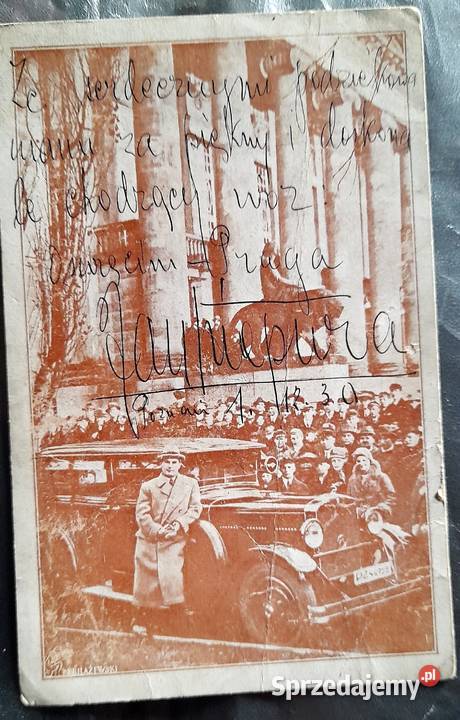 Ze serdecznymi podzięko
waniami za piękny i doskona
le chodzący wóz.
Oświęcim-Praga
Jan Kiepura
Poznań 1. 12. 30
Sprzedajemy.pl